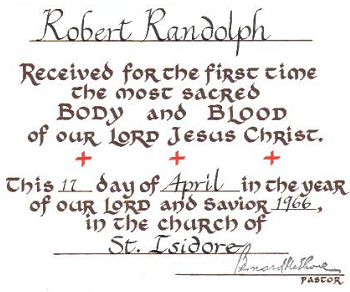 Robert Randolph
Received for the first time
the most sacred
Body and Blood
of our Lord Jesus Christ.
This 17 day of April in the year
of our Lord and Savior 1966,
in the church of
St. Isidore
Pastor